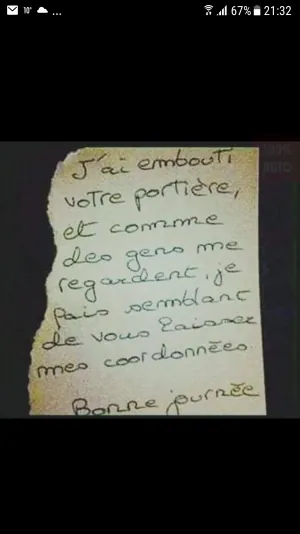 10°
...
67%
21:32
J'ai embouti
votre portière,
et comme
des gens me
regardent, je
fais semblant
de vous laisser
mes coordonnées
Bonne journée